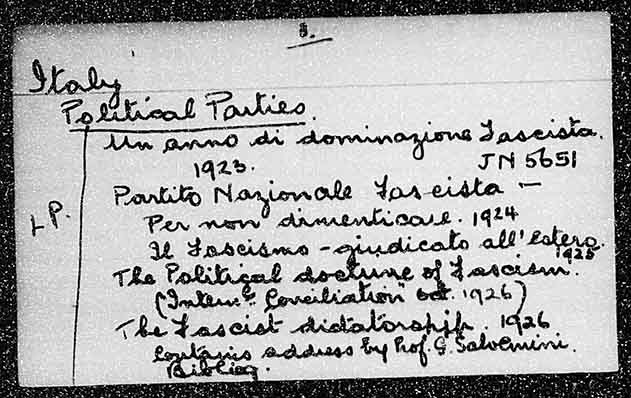 8.
Italy
Political Parties.
Un anno di dominazione Fascista.
1923. JN 5651
Partito Nazionale Fascista —
LP. Per non dimenticare. 1924
Il Fascismo - giudicato all'Estero.
1925
The Political doctrine of Fascism.
(Intern'l Conciliation Oct. 1926)
The Fascist dictatorship. 1926
Contains address by Prof. G. Salvemini.
Bibliog.